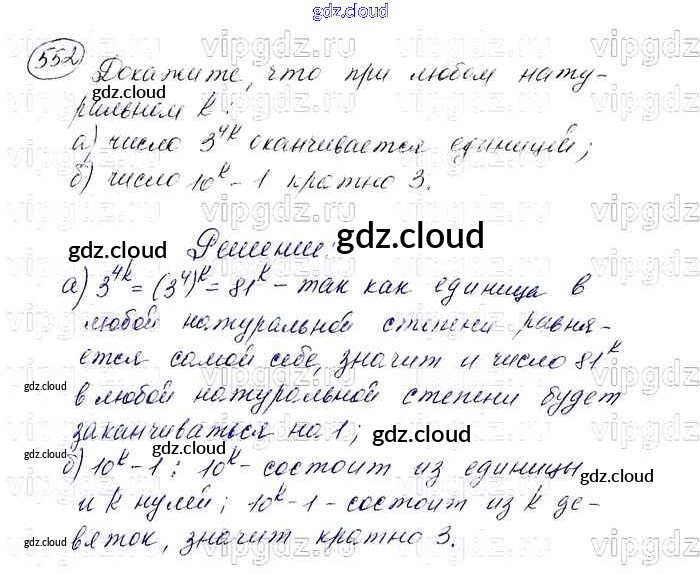 gdz.cloud
552 Докажите, что при любом нату-
ральном k:
а) число 3^4k оканчивается единицей;
б) число 10^k - 1 кратно 3.
Решение:
gdz.cloud gdz.cloud
а) 3^4k = (3^4)^k = 81^k - так как единица в
любой натуральной степени равня-
ется самой себе, значит и число 81^k
gdz.cloud gdz.cloud
в любой натуральной степени будет
заканчиваться на 1;
gdz.cloud gdz.cloud
б) 10^k - 1 : 10^k - состоит из единицы
gdz.cloud
и k нулей; 10^k - 1 - состоит из k де-
gdz.cloud gdz.cloud
вяток, значит кратно 3.
gdz.cloud
vipgdz.ru